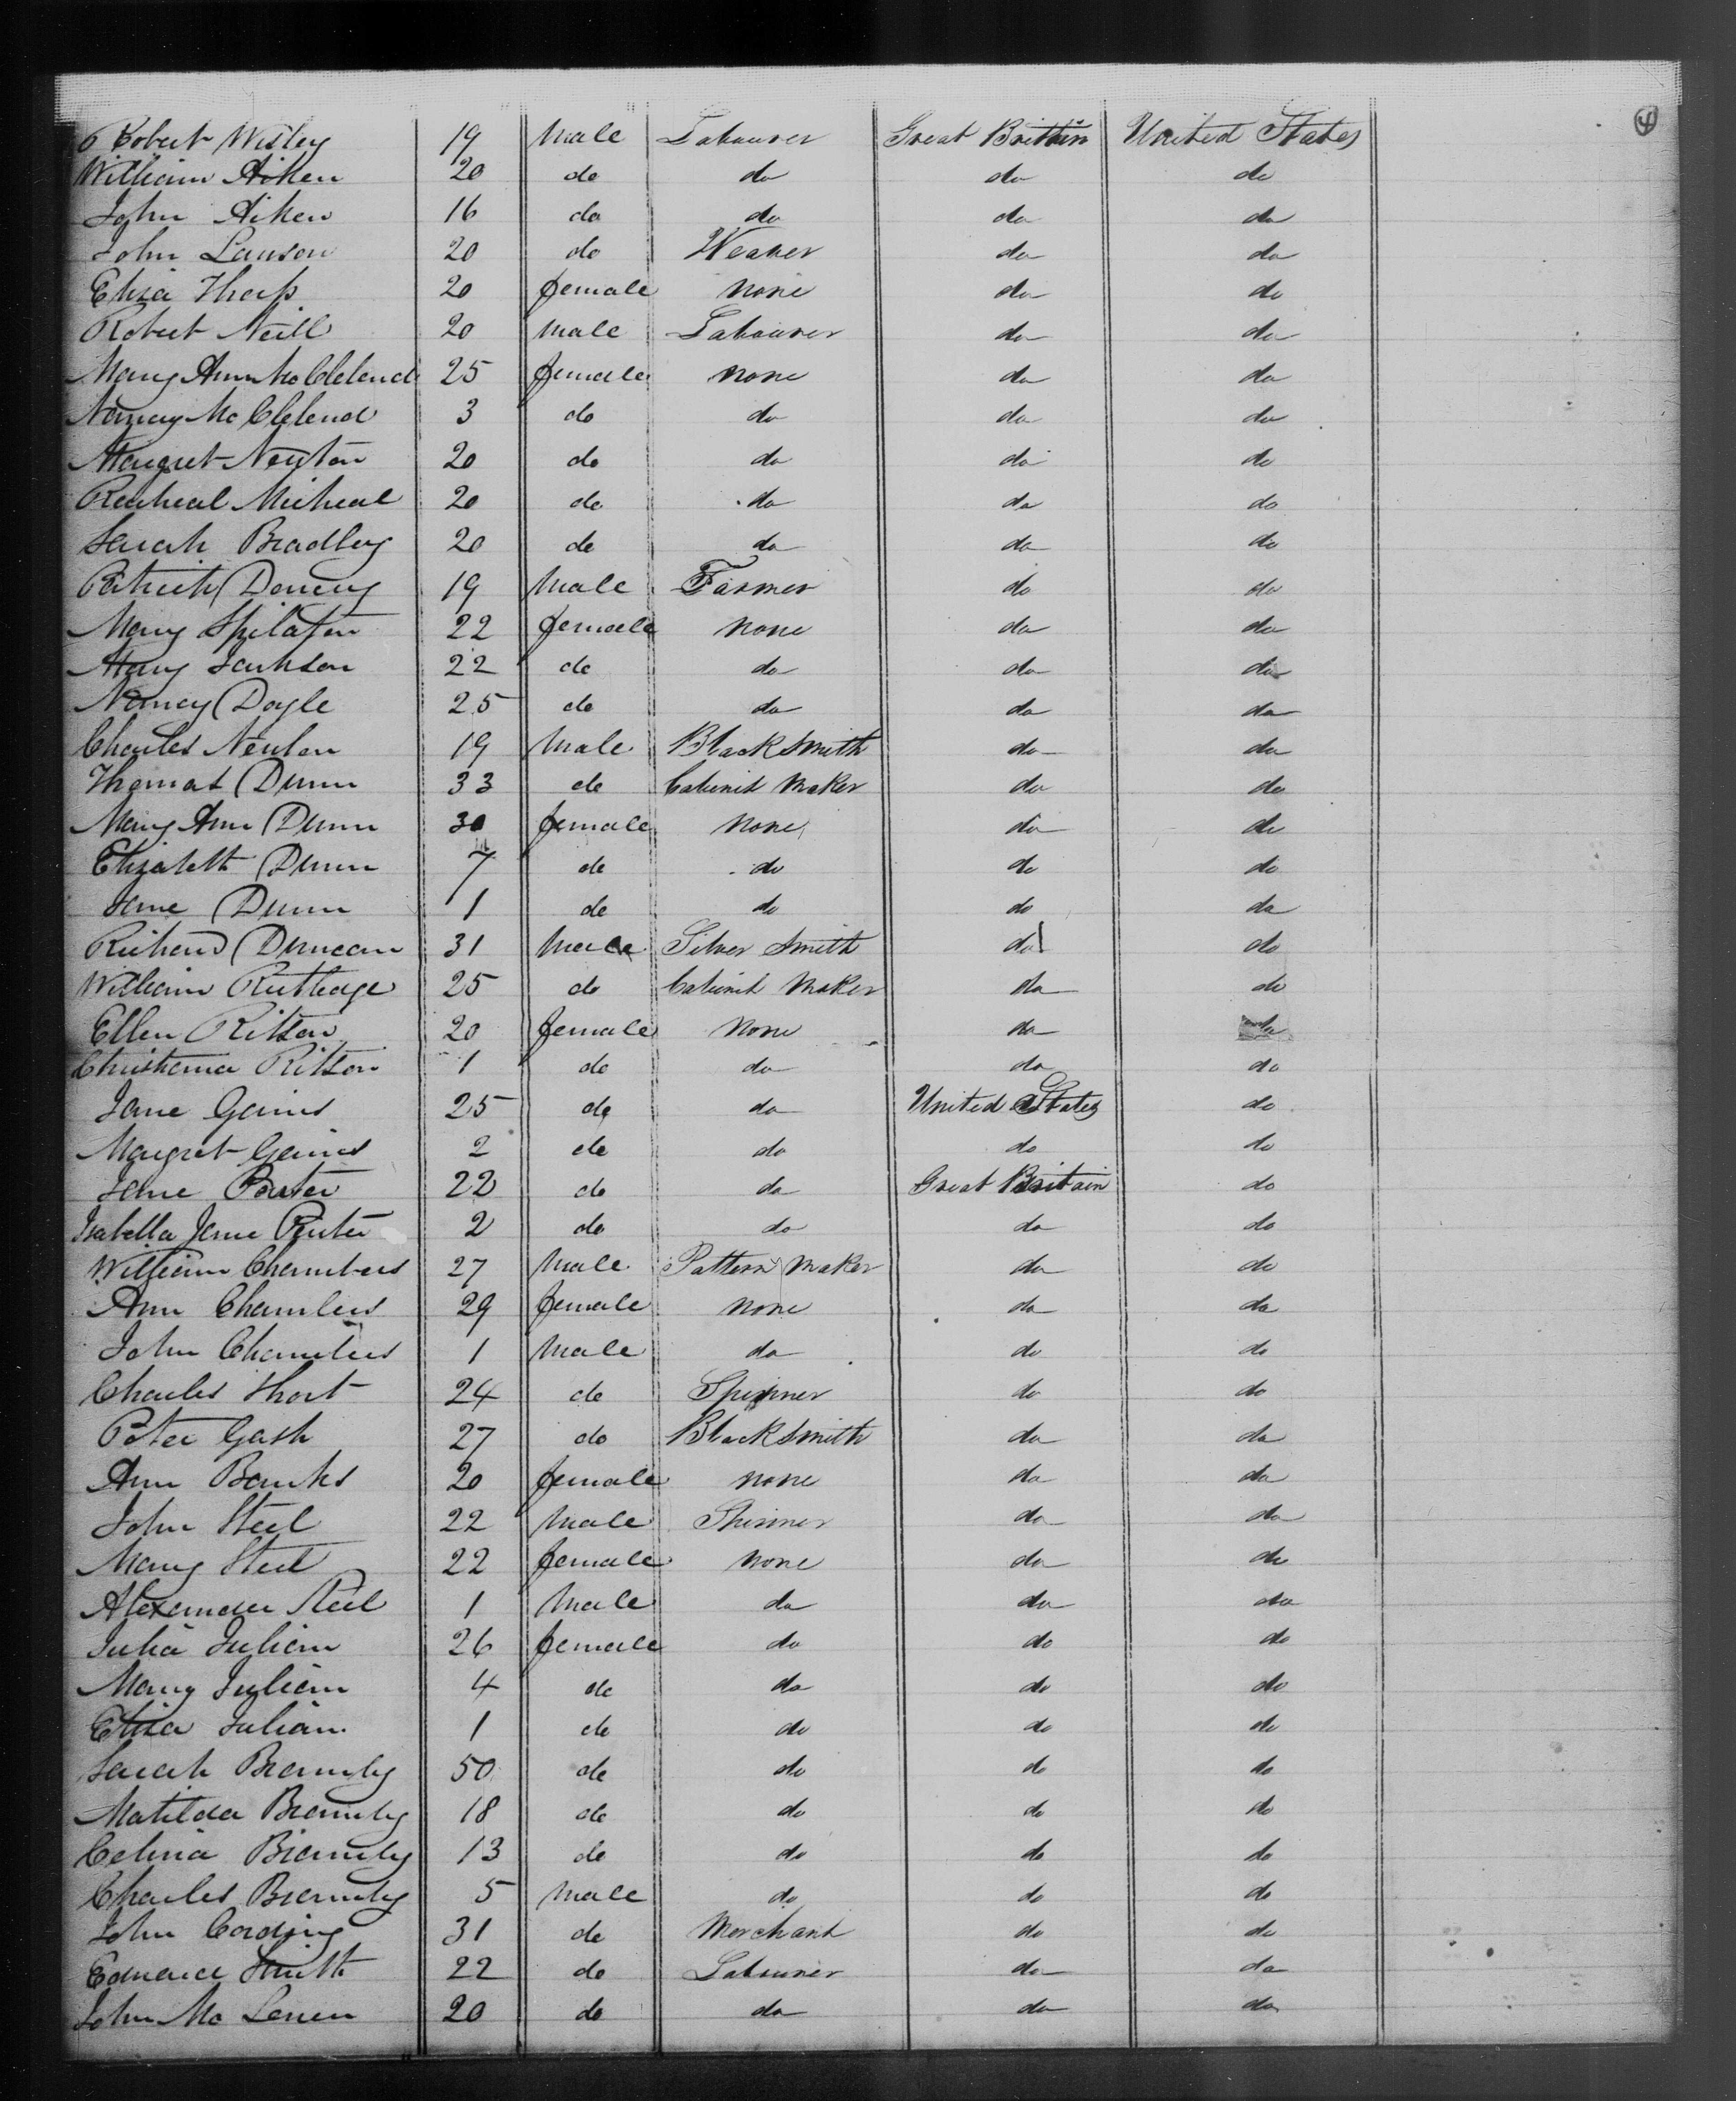 ④
6 Robert Wisley 19 Male Labourer Great Brittin United States
William Aiken 20 do do do do
John Aiken 16 do do do do
John Lauson 20 do Weaver do do
Eliza Tharp 20 female none do do
Robert Neill 20 Male Labourer do do
Mary Ann McCleland 25 female none do do
Nancy McCleland 3 do do do do
Margret Newton 20 do do do do
Racheal Micheal 20 do do do do
Sarah Bradley 20 do do do do
Patrick 19 Male Farmer do do
Mary 22 female none do do
Mary Jackson 22 do do do do
Nancy Doyle 25 do do do do
Charles Newton 19 Male Black Smith do do
Thomas Dunn 33 do Cabinit Maker do do
Mary Ann Dunn 30 female None do do
Elizabeth Dunn 7 do do do do
Jane Dunn 1 do do do do
Richard Duncan 31 Male Silver Smith do do
William Rutledge 25 do Cabinit Maker do do
Ellen Ritson 20 female None do do
Christiana Ritson 1 do do do do
Jane Gains 25 do do United States do
Margret Gains 2 do do do do
Jane Porter 22 do do Great Britain do
Isabella Jane Porter 2 do do do do
William Chambers 27 Male Pattern Maker do do
Ann Chambers 29 female none do do
John Chambers 1 Male do do do
Charles Short 24 do Spinner do do
Peter Gash 27 do Black Smith do do
Ann Banks 20 female none do do
John Steel 22 Male Spinner do do
Mary Steel 22 female none do do
Alexander Steel 1 Male do do do
Julia Julian 26 female do do do
Mary Julian 4 do do do do
Eliza Julian 1 do do do do
Sarah Bramley 50 do do do do
Matilda Bramley 18 do do do do
Celina Bramley 13 do do do do
Charles Bramley 5 Male do do do
John Cording 31 do Merchant do do
Edward Smith 22 do Labourer do do
John Mc 20 do do do do